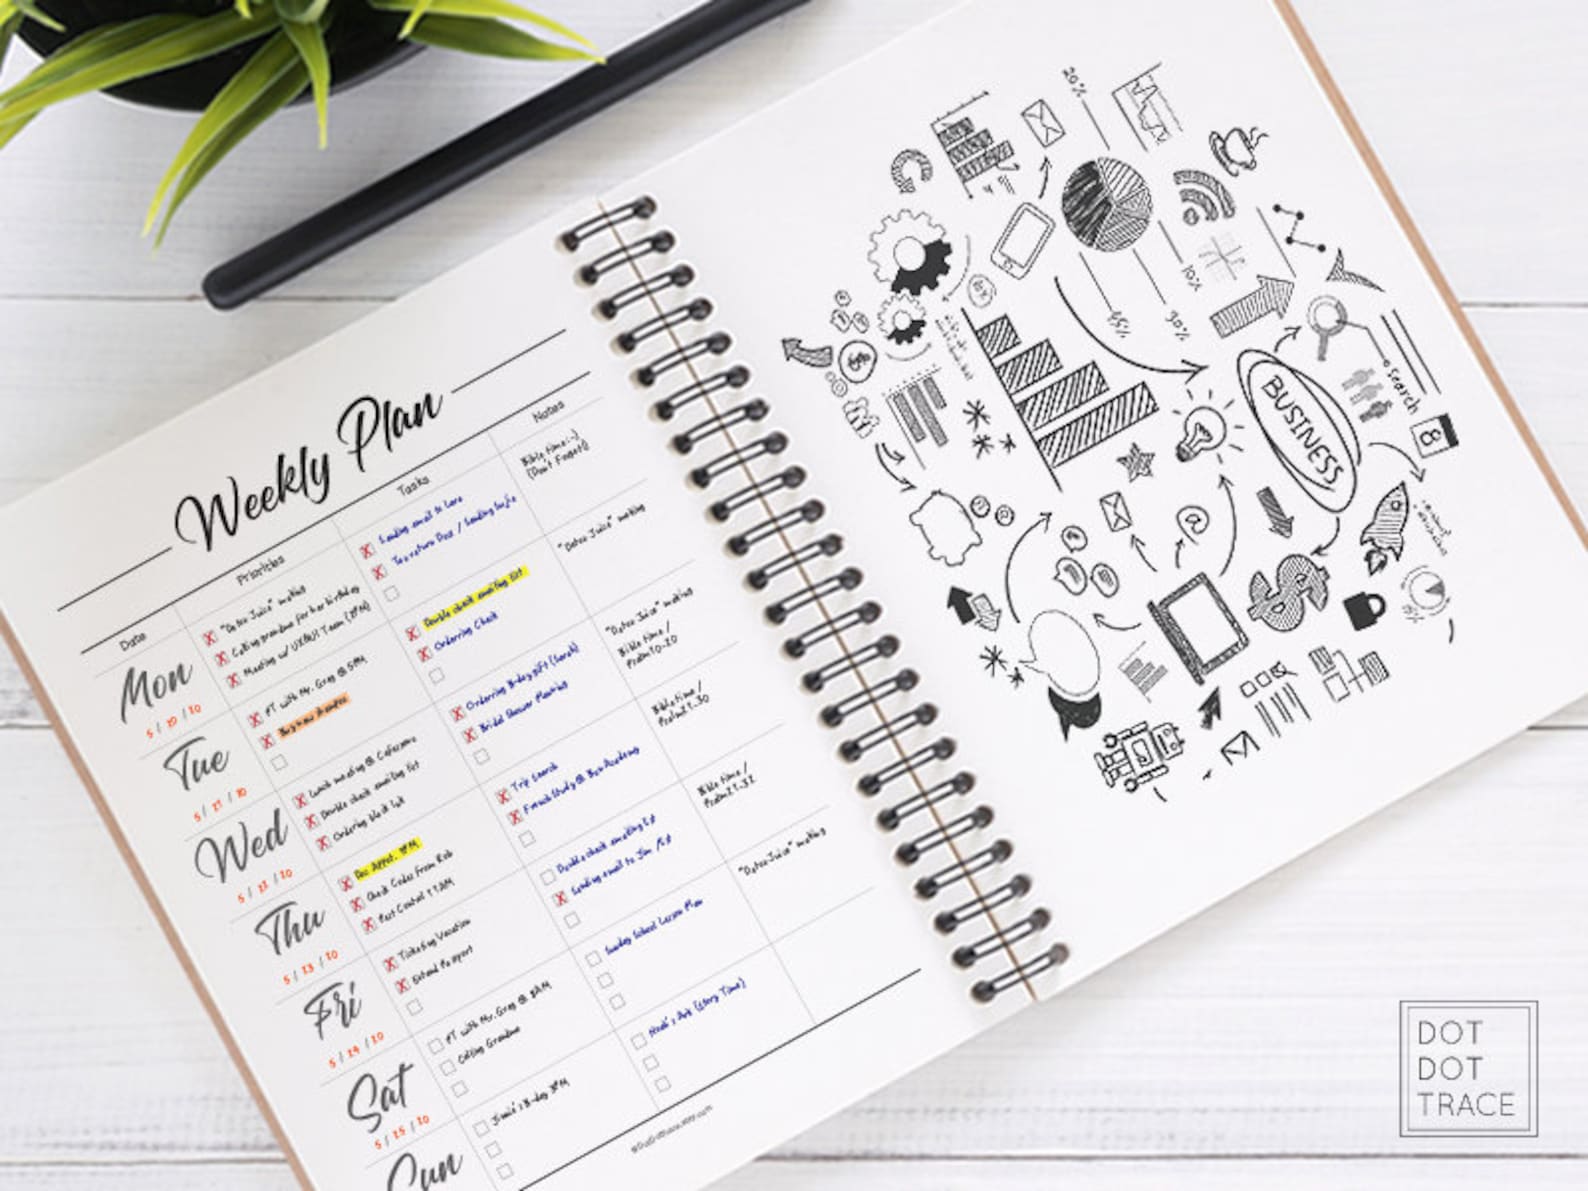 Weekly Plan
Date
Priorities
Tasks
Notes
Mon
"Detox Juice" making
Calling grandma for her birthday
Meeting w/ UX/BUI Team (2PM)
Sending email to Lara
Tax return Doc / Sending
Bible time :-)
(Don't Forget!)
Tue
PT with Mr. Greg @ 5PM
Buy new shampoo
Double check emailing list
Ordering Check
"Detox Juice" making
Wed
Lunch meeting @
Double check emailing list
Ordering
Ordering B-day gift (Sarah)
Bridal Shower Meeting
"Detox Juice" making
Bible time /
Psalm 10-20
Thu
Doc Appt.
Check Codes from Rob
Pest Control 11AM
Trip Search
French Study @
Bible time /
Psalm 21-30
Fri
Ticketing Vacation
Extend Passport
Double check emailing list
Sending email to Jim
Bible time /
Sat
5 / 25 / 20
PT with Mr. Greg @ 8AM
Calling Grandma
Sunday School Lesson Plan
"Detox Juice" making
Sun
B-day 3PM
Noah's Ark (Story Time)
20%
10%
45%
30%
BUSINESS
search
8
@
DOT
DOT
TRACE